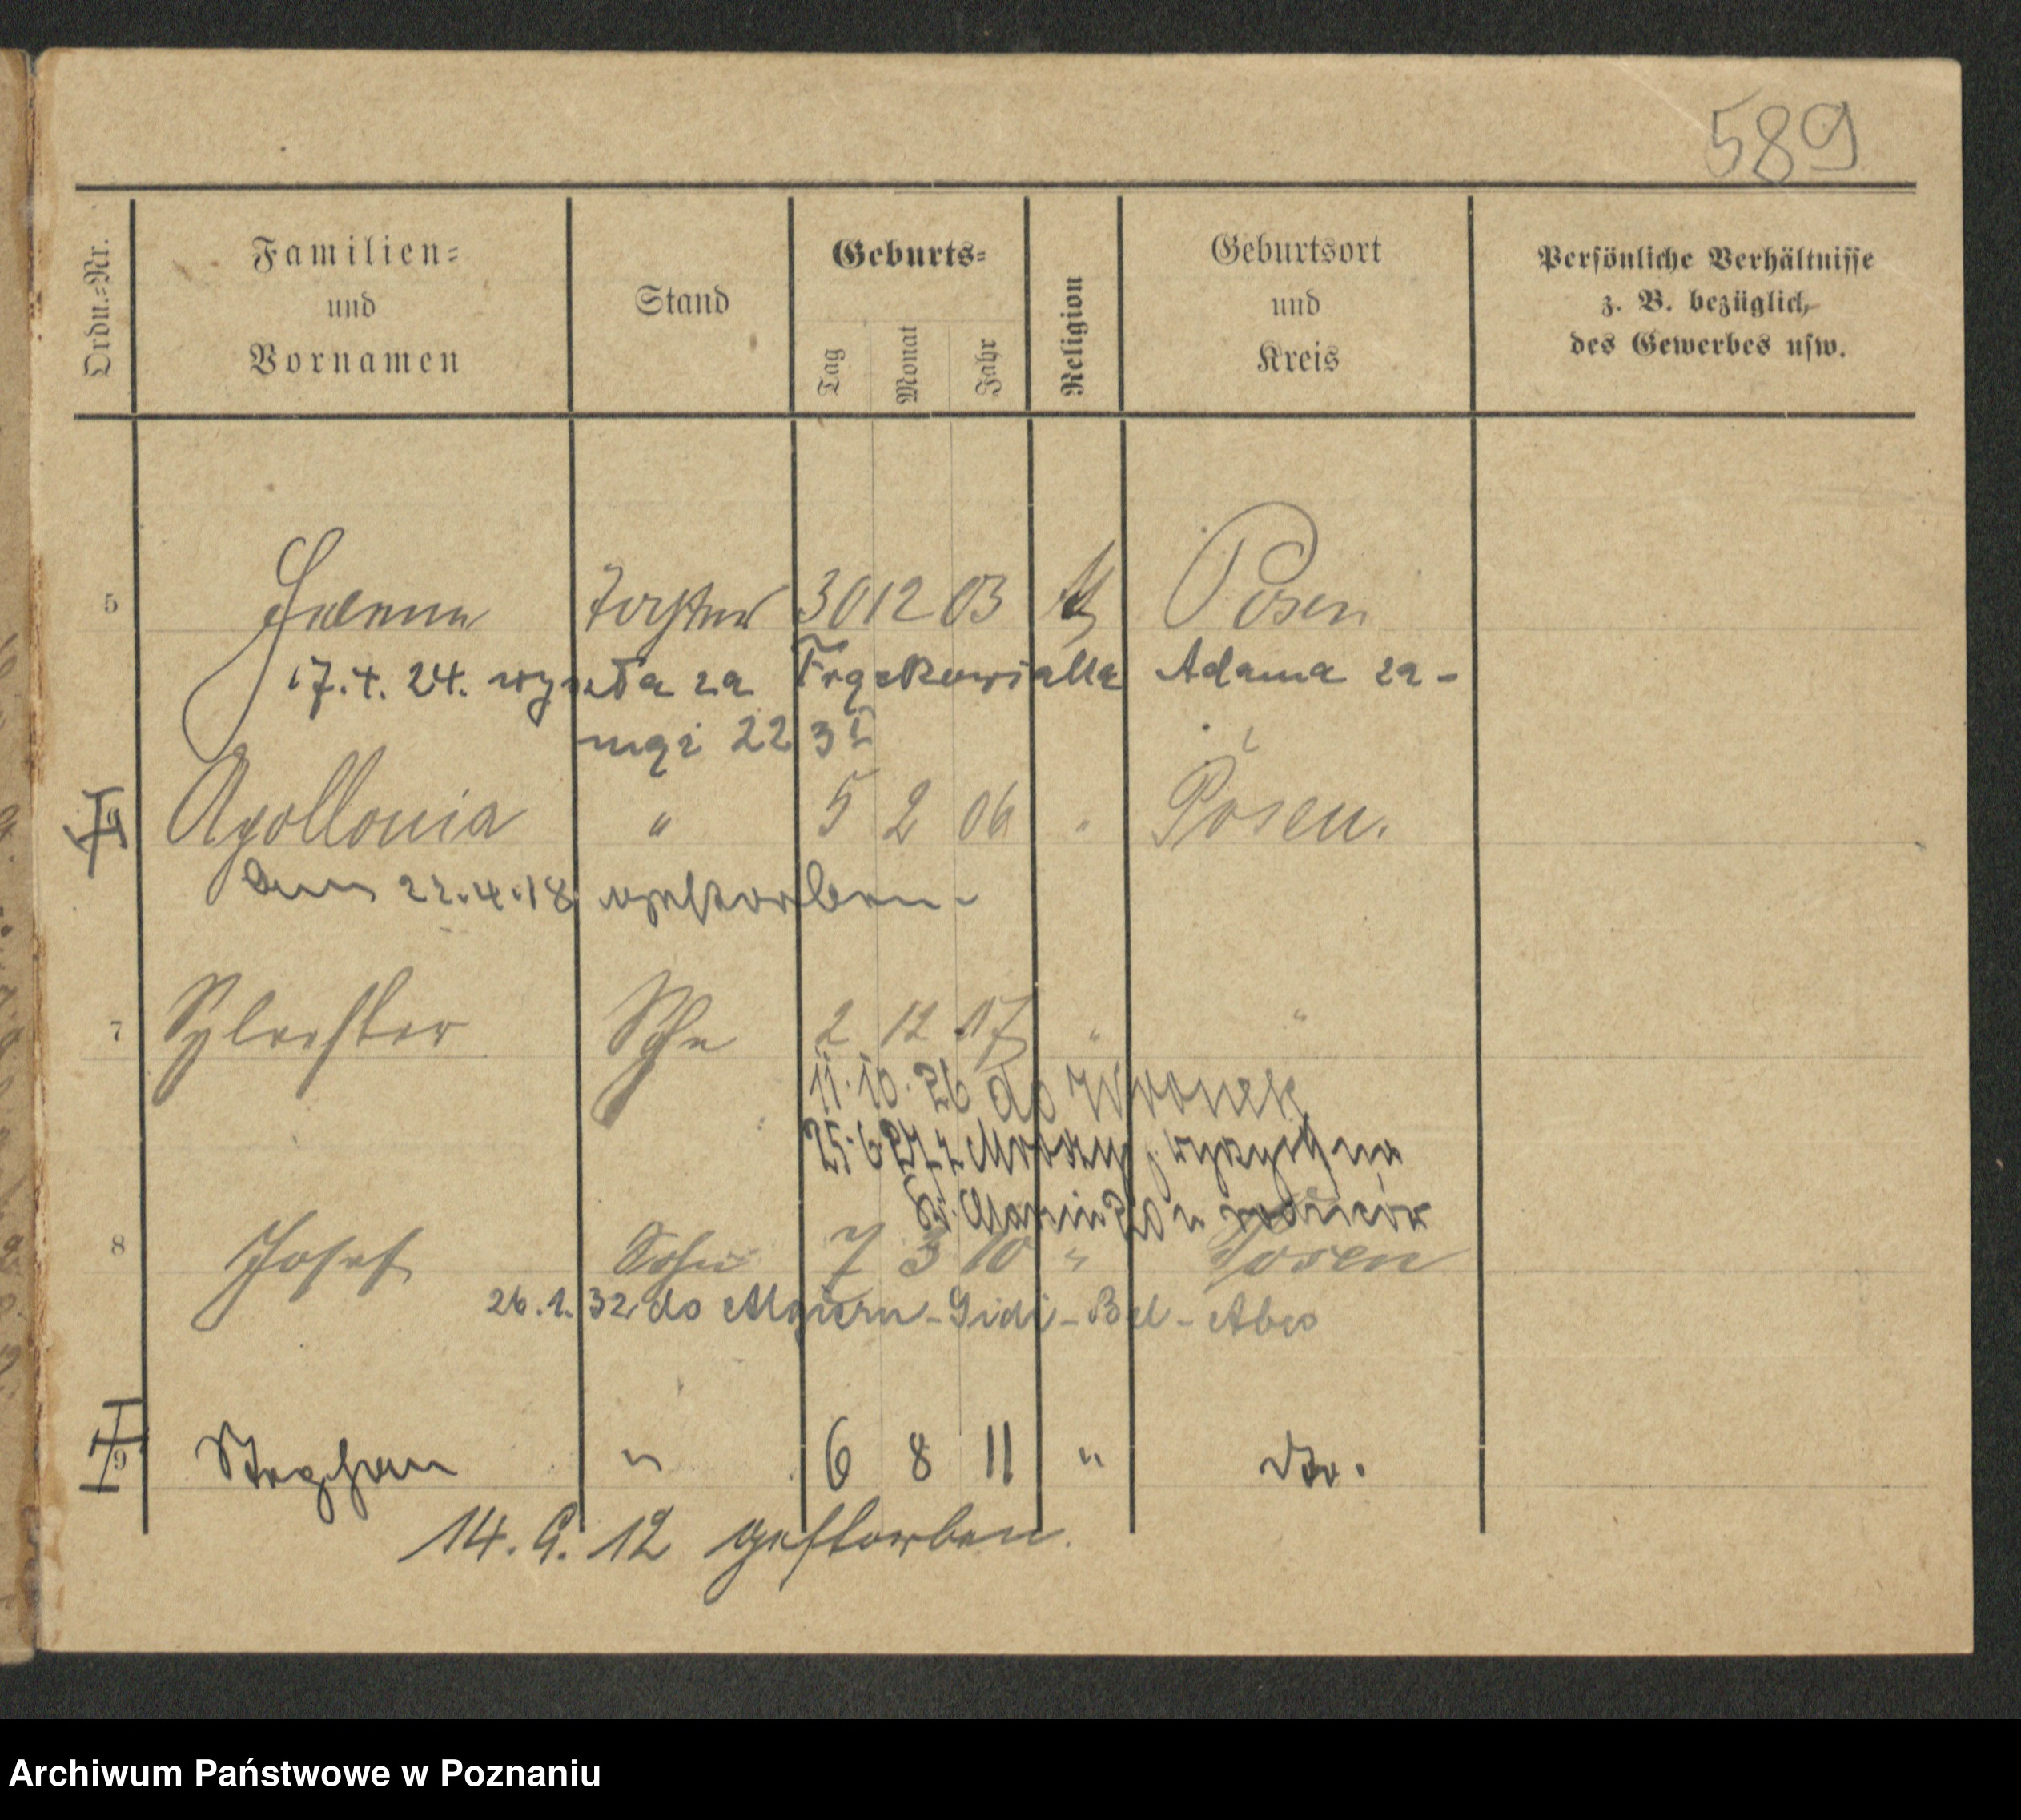 589
Ordn.-Nr.
Familien-
und
Vornamen
Stand
Geburts-
Tag
Monat
Jahr
Religion
Geburtsort
und
Kreis
Persönliche Verhältnisse
z. B. bezüglich
des Gewerbes usw.
5 Tochter 30 12 03 Posen
17.4.24. wyszła za Adama za-
mąż 22 3
6 Apollonia " 5 2 06 " Posen.
22.4.18 gestorben.
7 Sylvester Sohn 2 12 07 " "
11.10.26 do Wronek
25.6.27 z
Św. Marcin
8 Josef Sohn 7 3 10 " Posen
26.1.32 do Algieru-Sidi-Bel-Abes
9 Stephan " 6 8 11 " do.
14.9.12 gestorben.
Archiwum Państwowe w Poznaniu